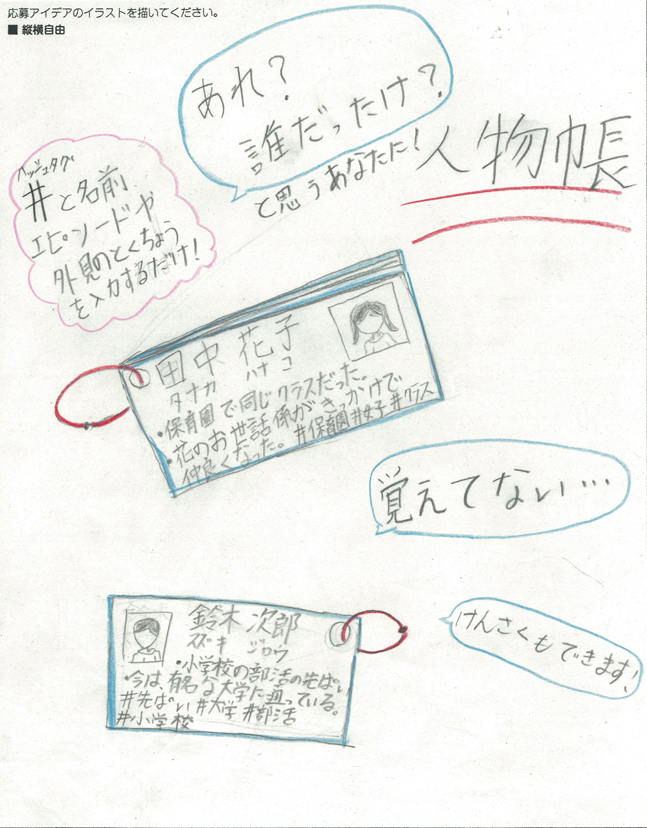 応募アイデアのイラストを描いてください。
■ 縦横自由
あれ?
誰だったけ?
と思うあなたに!
人物帳
ハッシュタグ
#と名前
エピソードや
外見のとくちょう
を入力するだけ!
田中 花子
タナカ ハナコ
・保育園で同じクラスだった。
・花のお世話係がきっかけで
仲良くなった。#保育園#女子#クラス
覚えてない…
鈴木 次郎
スズキ ジロウ
・小学校の部活の先ぱい
・今は有名な大学に通っている。
#先ぱい#大学 #部活
#小学校
けんさくもできます!